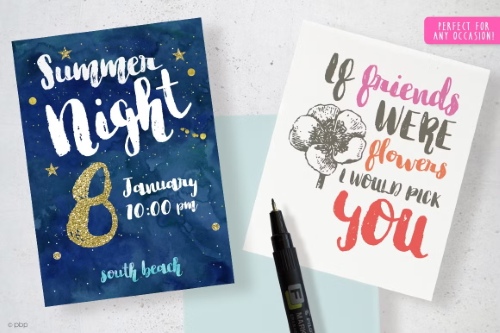 PERFECT FOR
ANY OCCASION!
Summer
Night
8
January
10:00 pm
south beach
If friends
WERE
flowers
I WOULD PICK
YOU
© pbp